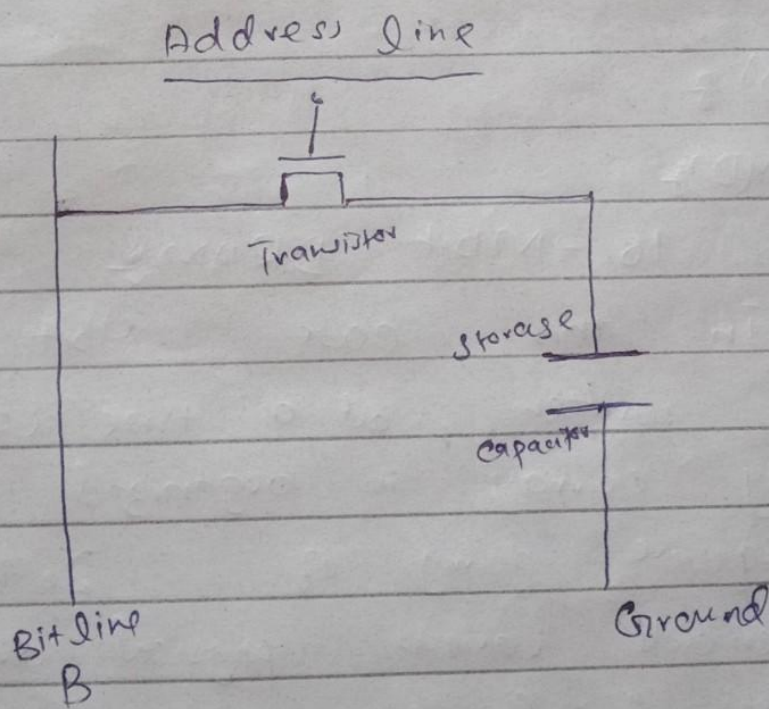 Address line
Transistor
Storage
Capacitor
Bit line
B
Ground